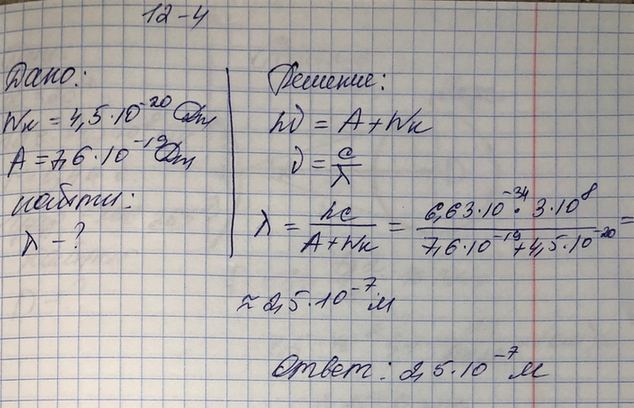 12-4
Дано:
Wк = 4,5·10⁻²⁰ Дж
A = 7,6·10⁻¹⁹ Дж
найти:
λ - ?
Решение:
hν = A + Wк
ν = c/λ
λ = hc/(A+Wк) = (6,63·10⁻³⁴ · 3·10⁸)/(7,6·10⁻¹⁹ + 4,5·10⁻²⁰) =
≈ 2,5·10⁻⁷ м
Ответ: 2,5·10⁻⁷ м